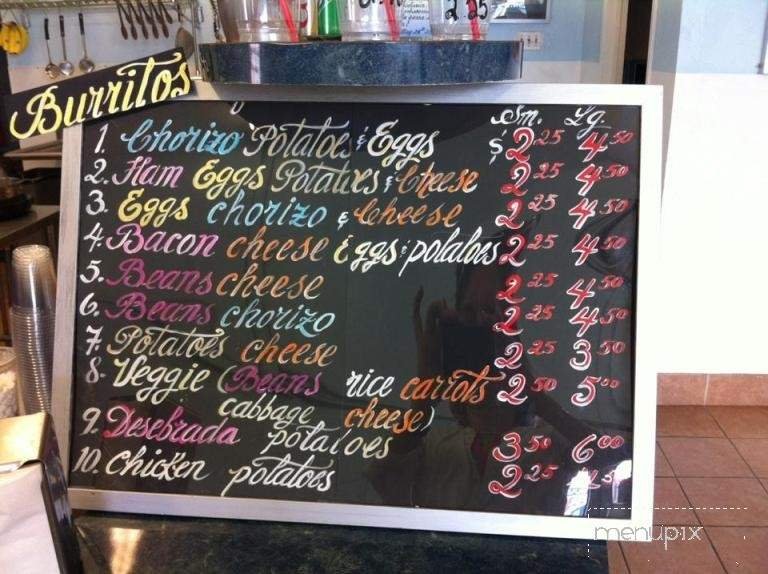 2.25
Burritos
Sm. Lg.
1. Chorizo Potatoes & Eggs $2.25 4.50
2. Ham Eggs Potatoes & Cheese 2.25 4.50
3. Eggs chorizo & Cheese 2.25 4.50
4. Bacon cheese Eggs & potatoes 2.25 4.50
5. Beans cheese 2.25 4.50
6. Beans chorizo 2.25 4.50
7. Potatoes cheese 2.25 3.50
8. Veggie (Beans rice carrots 2.50 5.00
cabbage cheese)
9. Desebrada potatoes 3.50 6.00
10. Chicken potatoes 2.25 4.50
menupix